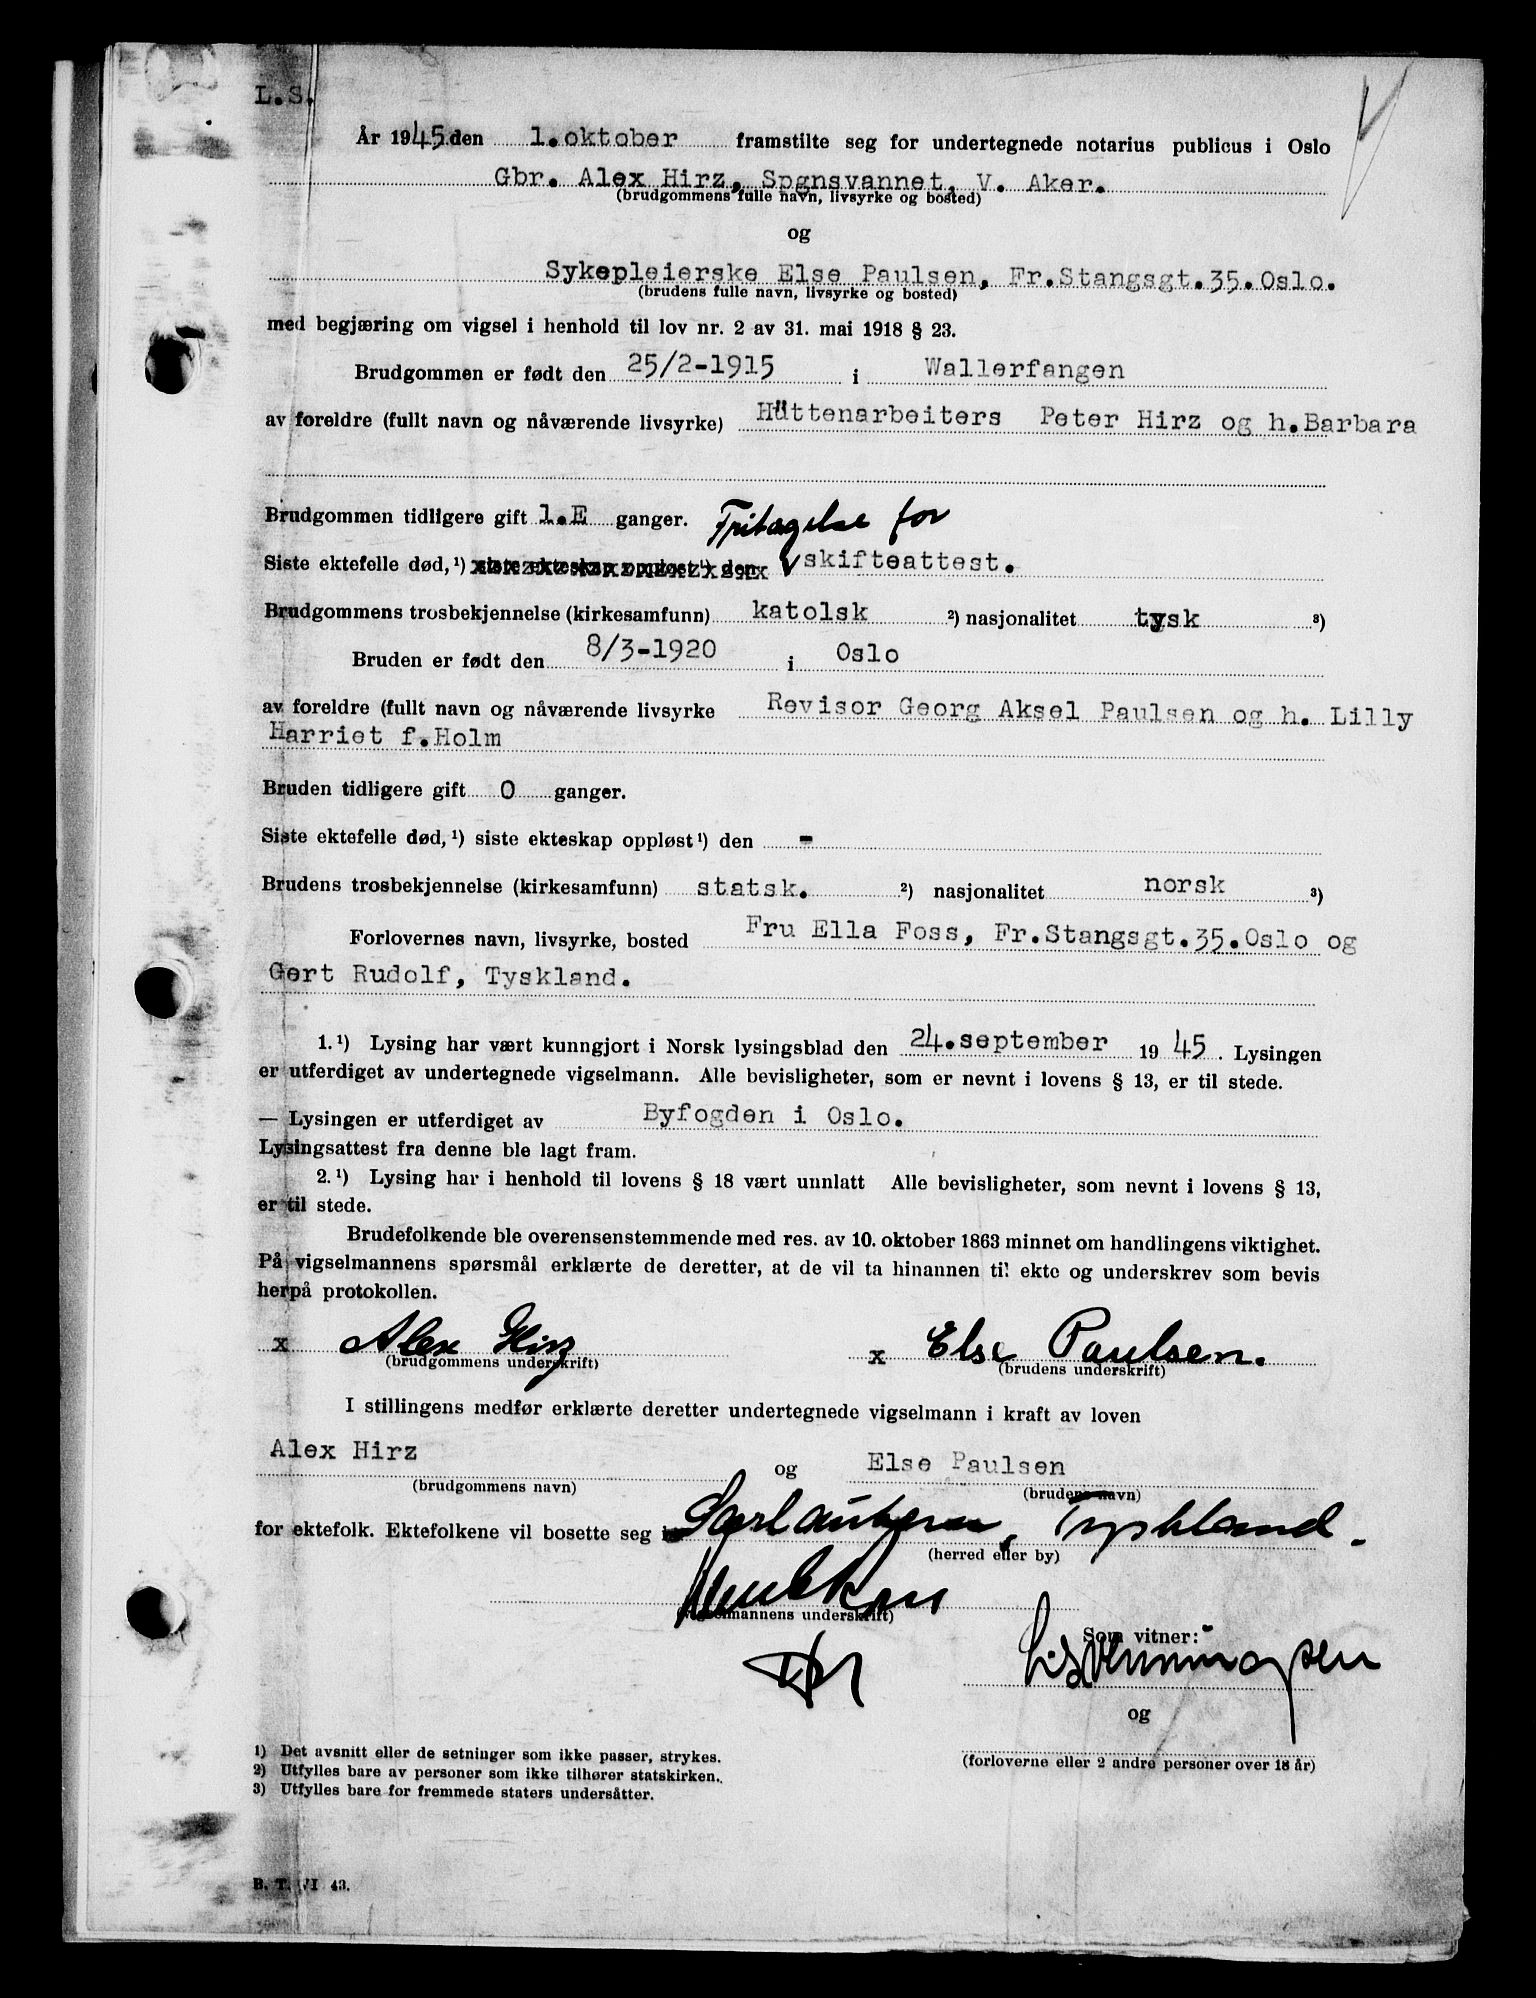 L.S.
År 1945 den 1.oktober framstilte seg for undertegnede notarius publicus i Oslo
Gbr. Alex Hirz, Spgnsvannet, V. Aker.
(brudgommens fulle navn, livsyrke og bosted)
og
Sykepleierske Else Paulsen, Fr.Stangsgt.35.Oslo.
(brudens fulle navn, livsyrke og bosted)
med begjæring om vigsel i henhold til lov nr. 2 av 31. mai 1918 § 23.
Brudgommen er født den 25/2-1915 i Wallerfangen
av foreldre (fullt navn og nåværende livsyrke) Hüttenarbeiters Peter Hirz og h.Barbara
Brudgommen tidligere gift 1.E ganger. Fritagelse for
Siste ektefelle død,¹) siste ekteskap oppløst¹) den skifteattest.
Brudgommens trosbekjennelse (kirkesamfunn) katolsk ²) nasjonalitet tysk ³)
Bruden er født den 8/3-1920 i Oslo
av foreldre (fullt navn og nåværende livsyrke Revisor Georg Aksel Paulsen og h. Lilly
Harriet f.Holm
Bruden tidligere gift 0 ganger.
Siste ektefelle død,¹) siste ekteskap oppløst¹) den -
Brudens trosbekjennelse (kirkesamfunn) statsk. ²) nasjonalitet norsk ³)
Forlovernes navn, livsyrke, bosted Fru Ella Foss, Fr.Stangsgt.35.Oslo og
Gert Rudolf, Tyskland.
1.¹) Lysing har vært kunngjort i Norsk lysingsblad den 24.september 1945. Lysingen
er utferdiget av undertegnede vigselmann. Alle bevisligheter, som er nevnt i lovens § 13, er til stede.
— Lysingen er utferdiget av Byfogden i Oslo.
Lysingsattest fra denne ble lagt fram.
2.¹) Lysing har i henhold til lovens § 18 vært unnlatt Alle bevisligheter, som nevnt i lovens § 13,
er til stede.
Brudefolkende ble overensenstemmende med res. av 10. oktober 1863 minnet om handlingens viktighet.
På vigselmannens spørsmål erklærte de deretter, at de vil ta hinannen til ekte og underskrev som bevis
herpå protokollen.
x Alex Hirz x Else Paulsen.
(brudgommens underskrift) (brudens underskrift)
I stillingens medfør erklærte deretter undertegnede vigselmann i kraft av loven
Alex Hirz og Else Paulsen
(brudgommens navn) (brudens navn)
for ektefolk. Ektefolkene vil bosette seg i Sarlautern, Tyskland.
(herred eller by)
(vigselmannens underskrift)
Som vitner:
og
(forloverne eller 2 andre personer over 18 år)
1) Det avsnitt eller de setninger som ikke passer, strykes.
2) Utfylles bare av personer som ikke tilhører statskirken.
3) Utfylles bare for fremmede staters undersåtter.
B. T. VI 43.